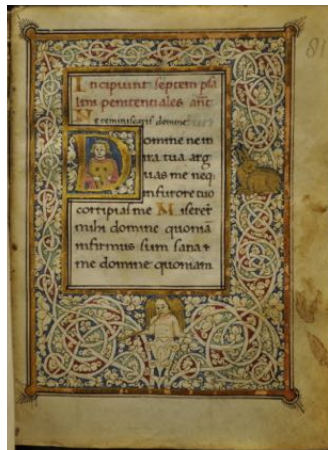 Incipiunt septem psal
lmi penitenciales. añt.
Ne reminiscaris domine
Domine ne in
ira tua arg
uas me neq;
in furore tuo
corripias me Miserer̃
mihi domine quonia
infirmus sum sana
me domine quoniam
81